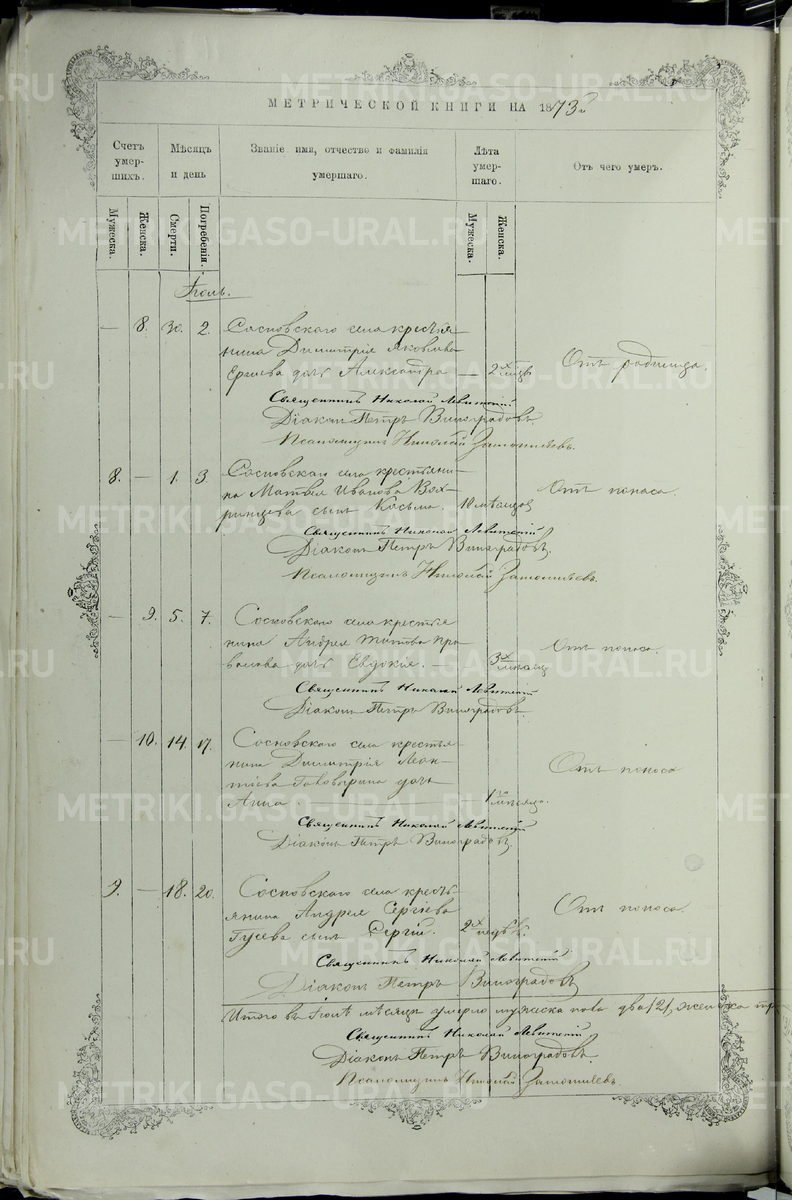 МЕТРИЧЕСКОЙ КНИГИ НА 1873й
Счетъ умер-шихъ. Мѣсяцъ и день Званіе имя, отчество и фамилія умершаго. Лѣта умер-шаго. Отъ чего умеръ.
Мужеска. Женска. Смерти. Погребенія. Мужеска. Женска.
Іюль.
— 8. 30. 2. Сосновскаго села крестья-
нина Димитрія Яковлева
дочь Александра — 2х мѣсяц Отъ родимца.
Священникъ Николай Левитскій
Діаконъ Петръ Виноградовъ.
Псаломщикъ Николай
8. — 1. 3. Сосновскаго села крестьяни-
на Матвѣя Иванова Вах-
ринцева сынъ Косьма. 10 мѣсяцов Отъ поноса.
Священникъ Николай Левитскій
Діаконъ Петръ Виноградовъ.
Псаломщикъ Николай
— 9. 5. 7. Сосновскаго села крестья
нина Андрея Титова
дочь Евдокія. — 3х мѣсяц Отъ поноса.
Священникъ Николай Левитскій
Діаконъ Петръ Виноградовъ.
— 10. 14. 17. Сосновскаго села крестья-
нина Димитрія Леон-
тіева дочь
Анна. 1го мѣсяца. Отъ поноса
Священникъ Николай Левитскій
Діаконъ Петръ Виноградовъ
9. — 18. 20. Сосновскаго села кресть
янина Андрея Сергіева
Гусева сынъ Сергій. 2х недѣль. Отъ поноса.
Священникъ Николай Левитскій
Діаконъ Петръ Виноградовъ
Итого въ Іюлѣ мѣсяцѣ умерло мужеска пола два /2/, женска
Священникъ Николай Левитскій
Діаконъ Петръ Виноградовъ.
Псаломщикъ Николай
METRIKI.GASO-URAL.RU